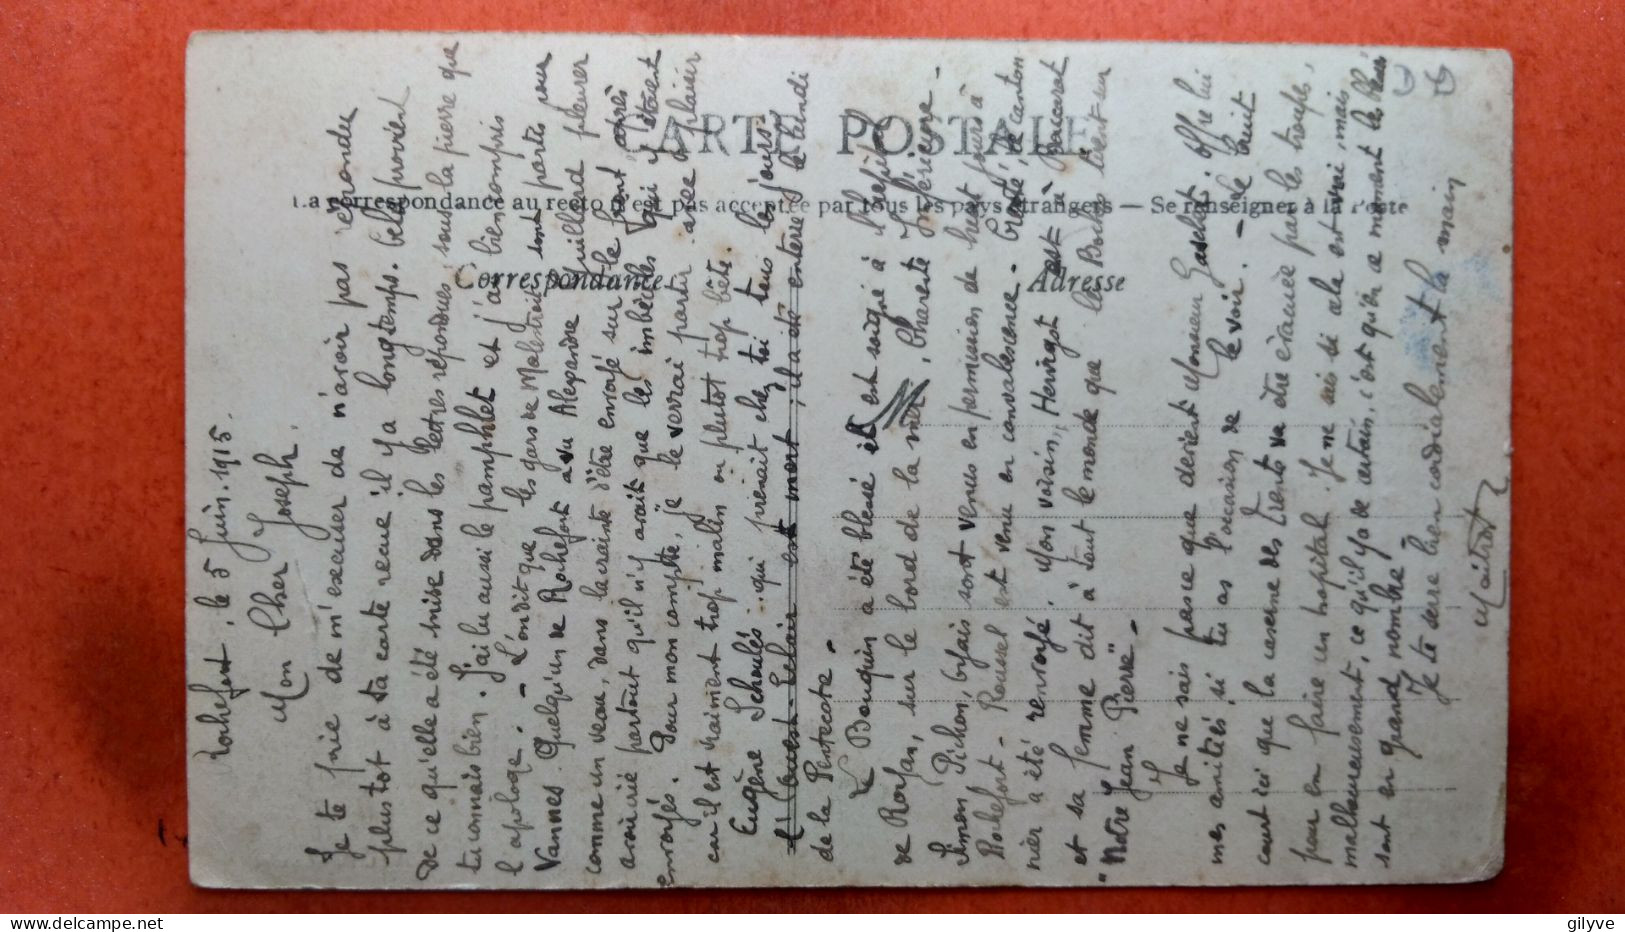 CARTE POSTALE
La correspondance au recto n'est pas acceptée par tous les pays étrangers — Se renseigner à la Poste
Correspondance
Adresse
M
Rochefort, le 5 Juin. 1915.
Mon Cher Joseph.
Je te prie de m'excuser de n'avoir pas répondu
plus tot à ta carte recue il y a longtemps. Cela provient
de ce qu'elle a été mise dans les lettres répondues sous la pierre que
tu connais bien. J'ai lu aussi le pamphlet et j'ai bien compris
l'apologe. - L'on dit que les gars de Malestroit sont partis pour
Vannes. Quelqu'un de Rochefort a vu Alexandre Juillard pleurer
comme un veau, dans la crainte d'être envoyé sur le front après
avoir crié partout qu'il n'y avait que les imbéciles qui y étaient
envoyés. Pour mon compte, je le verrai partir avec plaisir
car il est vraiment trop malin ou plutot trop bête.
Eugène Schoulés qui venait chez toi tous les jours
à l'Ouest-Eclair est mort, il a été enterré le lundi
de la Pentecote -
Le Bouquin a été blessé il est soigné à l'hopital
de Royan, sur le bord de la mer, Charente Inférieure -
Simon Pichon, sont venus en permission de huit jours à
Rochefort - Roussel est venu en convalescence - le canton
nier a été renvoyé. Mon voisin, Hervigot est à Baccarat
et sa femme dit à tout le monde que les Boches tirent sur
"Notre Jean Pierre" -
Je ne sais pas ce que devient Monsieur Gaschet. Offre lui
mes amitiés, si tu as l'occasion de le voir. - Le bruit
court ici que la caserne des Trente va être évacuée par les troupes,
pour en faire un hopital. Je ne sais si cela est vrai, mais
malheureusement, ce qu'il y a de certain, c'est qu'en ce moment les blessés
sont en grand nombre
Je te serre bien cordialement la main
Maitrot
gilyve